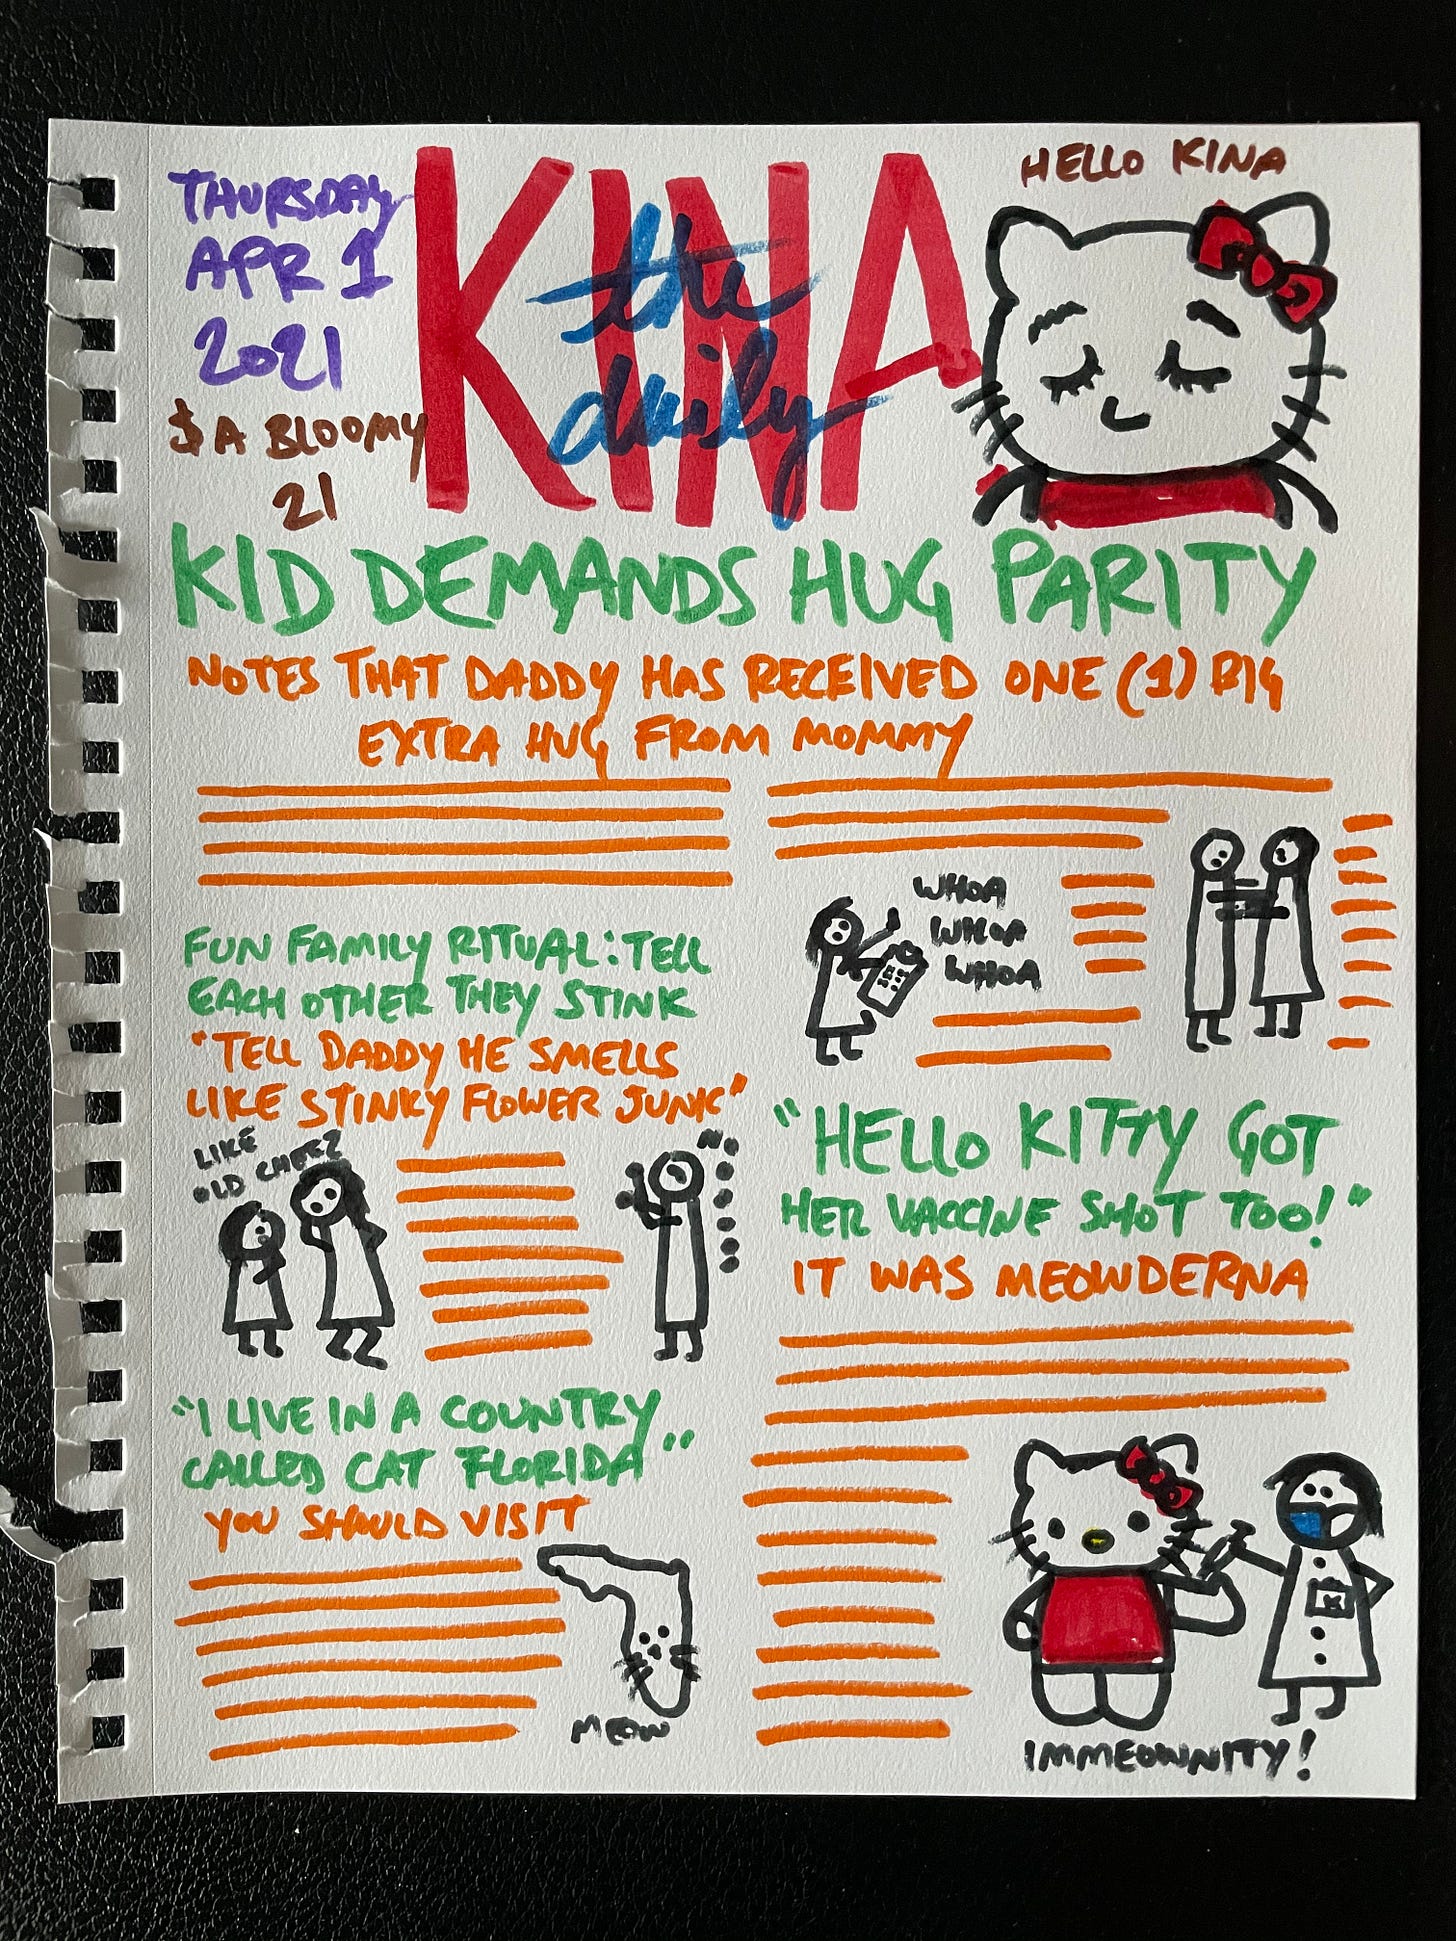 THURSDAY
APR 1
2021
$ A BLOOMY
21
KINA
the
daily
HELLO KINA
KID DEMANDS HUG PARITY
NOTES THAT DADDY HAS RECEIVED ONE (1) BIG
EXTRA HUG FROM MOMMY
WHOA
WHOA
WHOA
FUN FAMILY RITUAL: TELL
EACH OTHER THEY STINK
"TELL DADDY HE SMELLS
LIKE STINKY FLOWER JUNK"
LIKE
OLD CHEEZ
NO
"HELLO KITTY GOT
HER VACCINE SHOT TOO!"
IT WAS MEOWDERNA
"I LIVE IN A COUNTRY
CALLED CAT FLORIDA"
YOU SHOULD VISIT
MEOW
K
IMMEOWNITY!